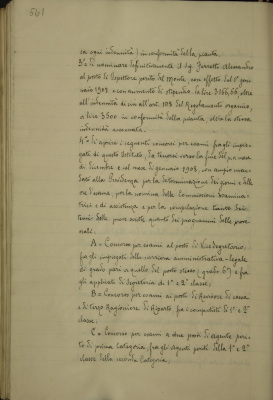 561
sa ogni indennità) in conformità della pianta.
3° di nominare definitivamente il Sig. Alessandro
al posto di Ispettore perito del Monte, con effetto dal 1° gen-
naio 1908 e con aumento di stipendio da lire 3166,66, oltre
all'indennità di cui all'art. 108 del Regolamento organico,
a lire 3500 in conformità della pianta, oltre la stessa
indennità accennata.
4° di aprire i seguenti concorsi per esami fra gli impie-
gati di questo Istituto, da tenersi verso la fine del p.v. mese
di Dicembre e nel mese di gennaio 1908, con ampio man-
dato alla Presidenza per la determinazione dei giorni e delle
ore d'esame, per la nomina delle Commissioni esamina-
trici e di assistenza e per la compilazione tanto
delle prove scritte, quanto dei programmi delle prove
orali:
A = Concorso per esami al posto di Vice Segretario
fra gli impiegati della sezione amministrativa-legale
di grado pari a quello del posto stesso (grado 6°) e fra
gli applicati di Segreteria di 1ª e 2ª classe;
B = Concorso per esami ai posti di di cassa
e di terzo Ragioniere di Riparto fra i computisti di 1ª e 2ª
classe;
C = Concorso per esami a due posti di agente peri-
to di prima categoria fra gli agenti periti della 1ª e 2ª
classe della seconda Categoria;